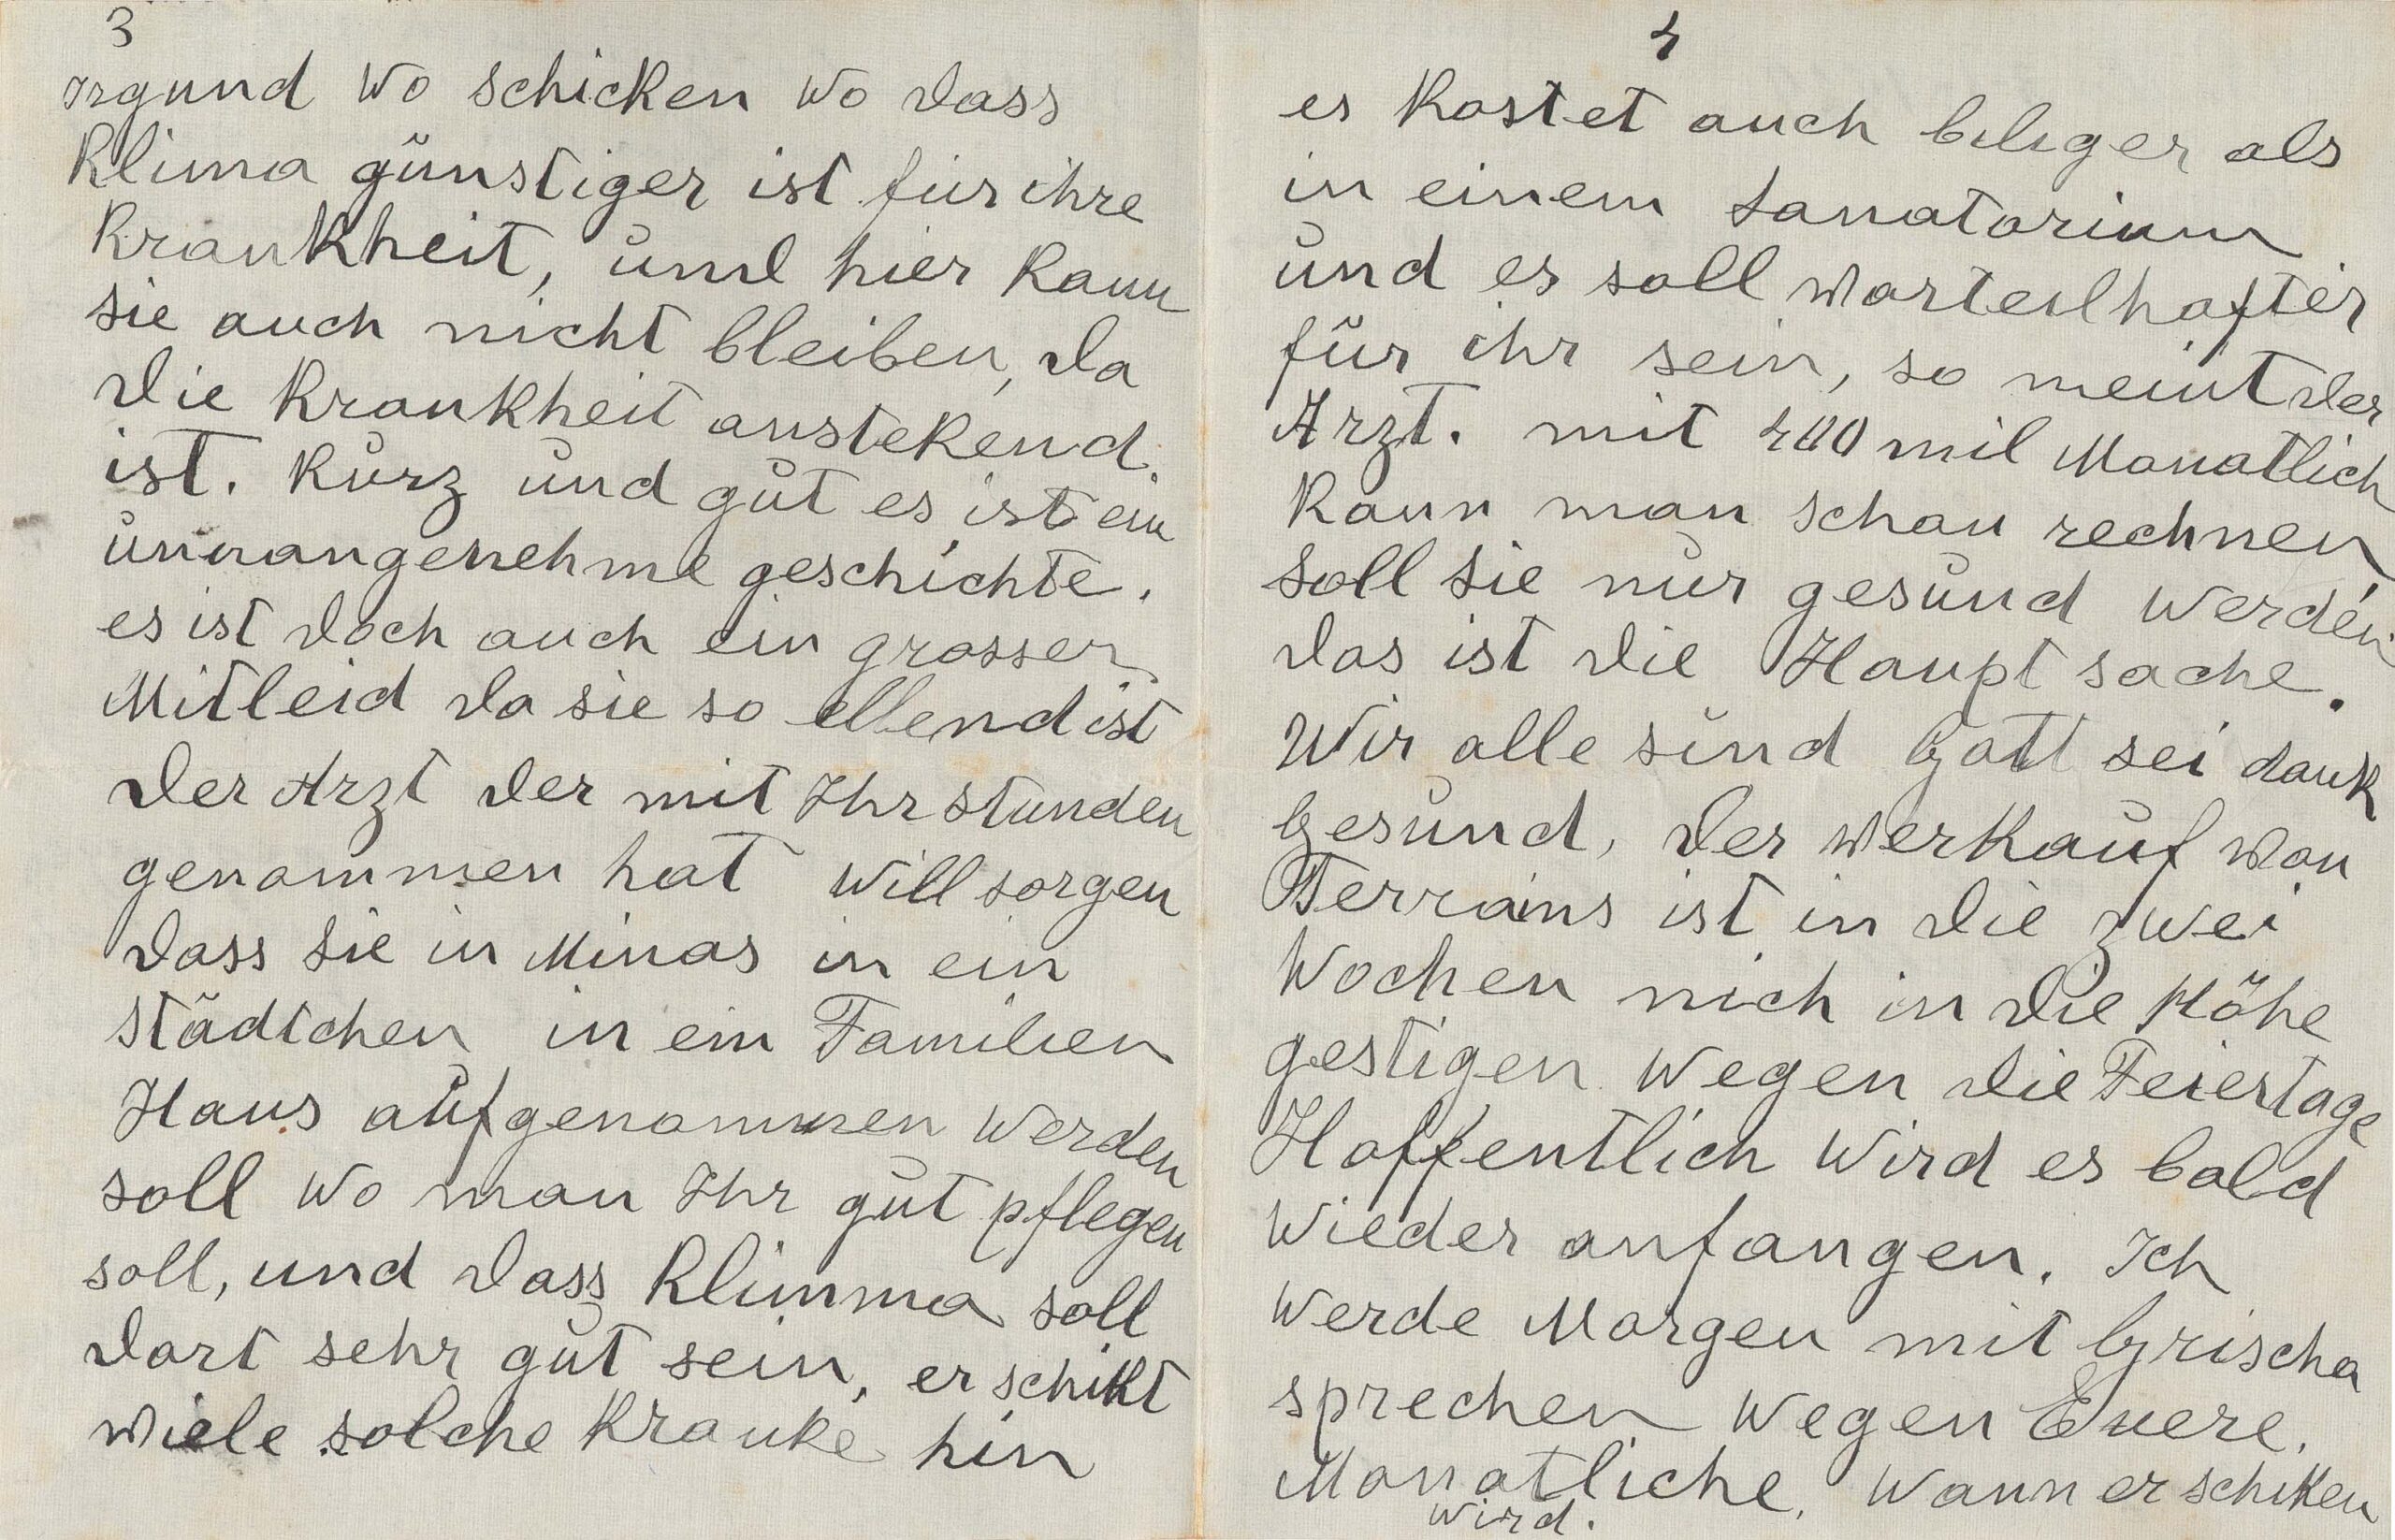 3
irgund wo schicken wo dass
Klima günstiger ist für ihre
Krankheit, und hier kann
sie auch nicht bleiben, da
die Krankheit anstekend
ist. Kurz und gut es ist ein
unnangenehme geschichte.
es ist doch auch ein grosser
Mitleid da sie so ellend ist
der Arzt der mit Ihr stunden
genommen hat will sorgen
dass sie in Minas in ein
städtchen in ein Familien
Haus aufgenommen werden
soll wo man Ihr gut pflegen
soll, und dass Klimma soll
dort sehr gut sein, er schikt
wiele solche Kranke hin
4
es kostet auch biliger als
in einem Sanatorium
und es soll worteilhafter
für ihr sein, so meint der
Arzt. mit 400 mil Monatlich
kann man schon rechnen
soll sie nur gesund werden
das ist die Haupt sache.
Wir alle sind Gott sei dank
Gesund, der werkauf won
Terrains ist in die zwei
Wochen nich in die Höhe
gestigen wegen die Feiertage
Hoffentlich wird es bald
wieder anfangen. Ich
werde Morgen mit Grischa
sprechen wegen Euere.
Monatliche, wann er schiken
wird.